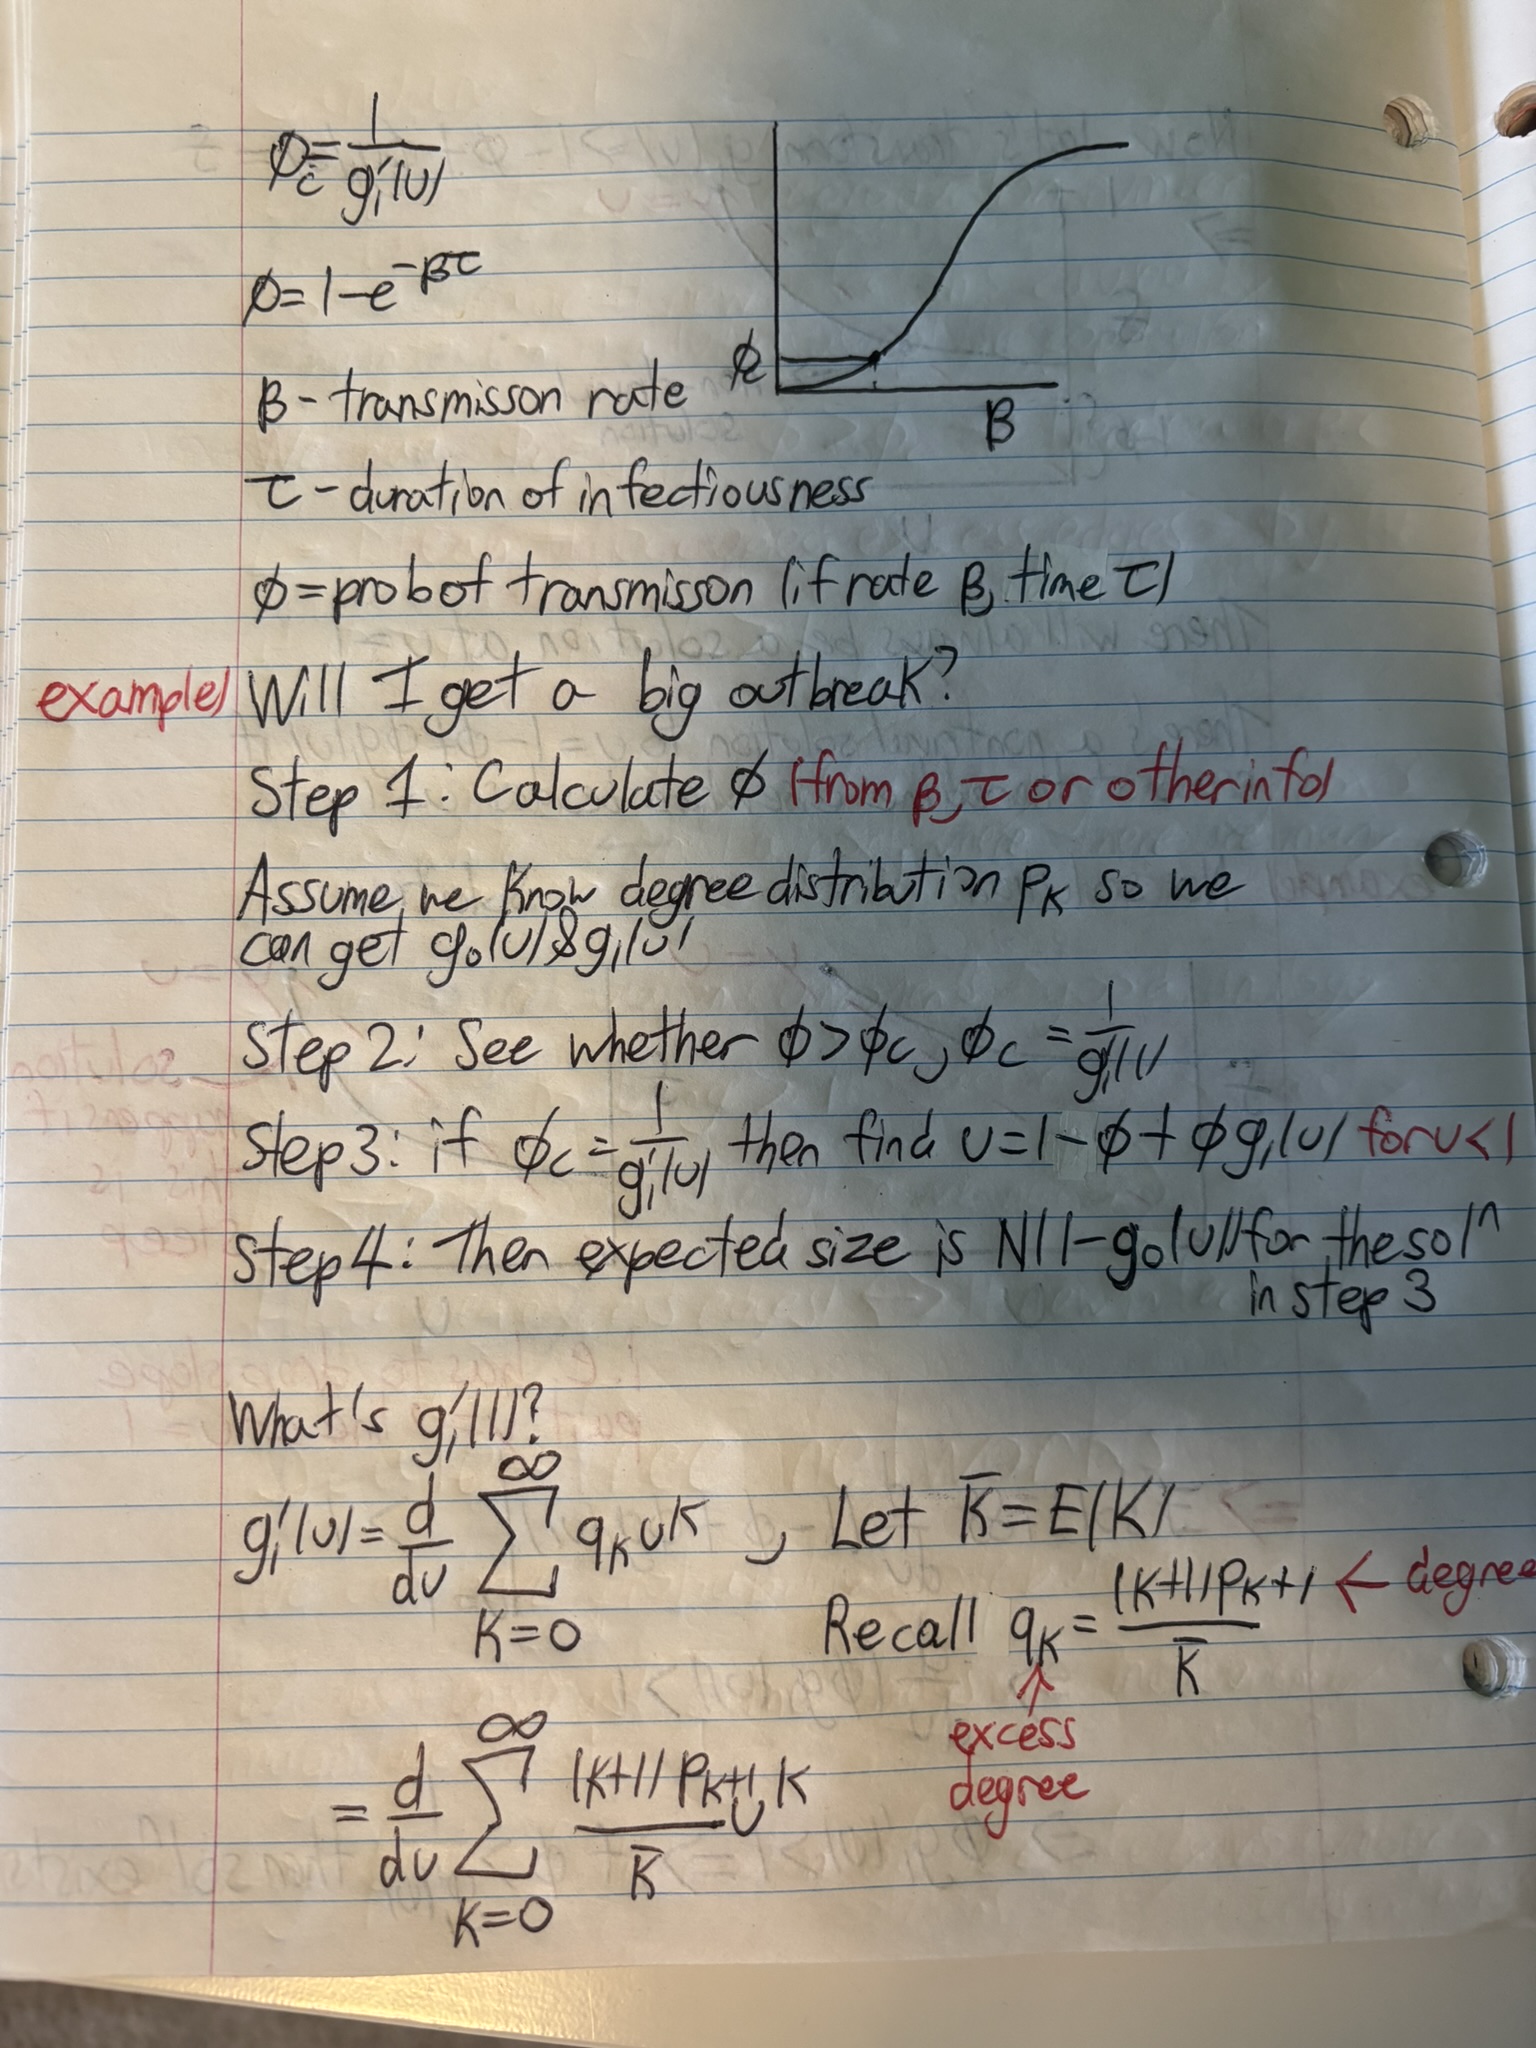 ϕc = 1/g₁'(u)
ϕ = 1 - e^(-βτ)
ϕc
β
β - transmisson rate
τ - duration of infectiousness
ϕ = prob of transmisson (if rate β, time τ)
example) Will I get a big outbreak?
Step 1: Calculate ϕ (from β, τ or other info)
Assume we know degree distribution pₖ so we
can get g₀(u) & g₁(u)
Step 2: See whether ϕ > ϕc, ϕc = 1/g₁'(1)
Step 3: if ϕc = 1/g₁'(u), then find u = 1 - ϕ + ϕg₁(u) for u < 1
Step 4: Then expected size is N(1 - g₀(u)) for the solⁿ
in step 3
What's g₁'(1)?
g₁'(u) = d/du ∑_{K=0}^{∞} qₖ uᴷ, Let K̄ = E(K)
Recall qₖ = (K+1)Pₖ₊₁ / K̄ ← degree
↑
excess
degree
= d/du ∑_{K=0}^{∞} (K+1)Pₖ₊₁ / K̄ uᴷ